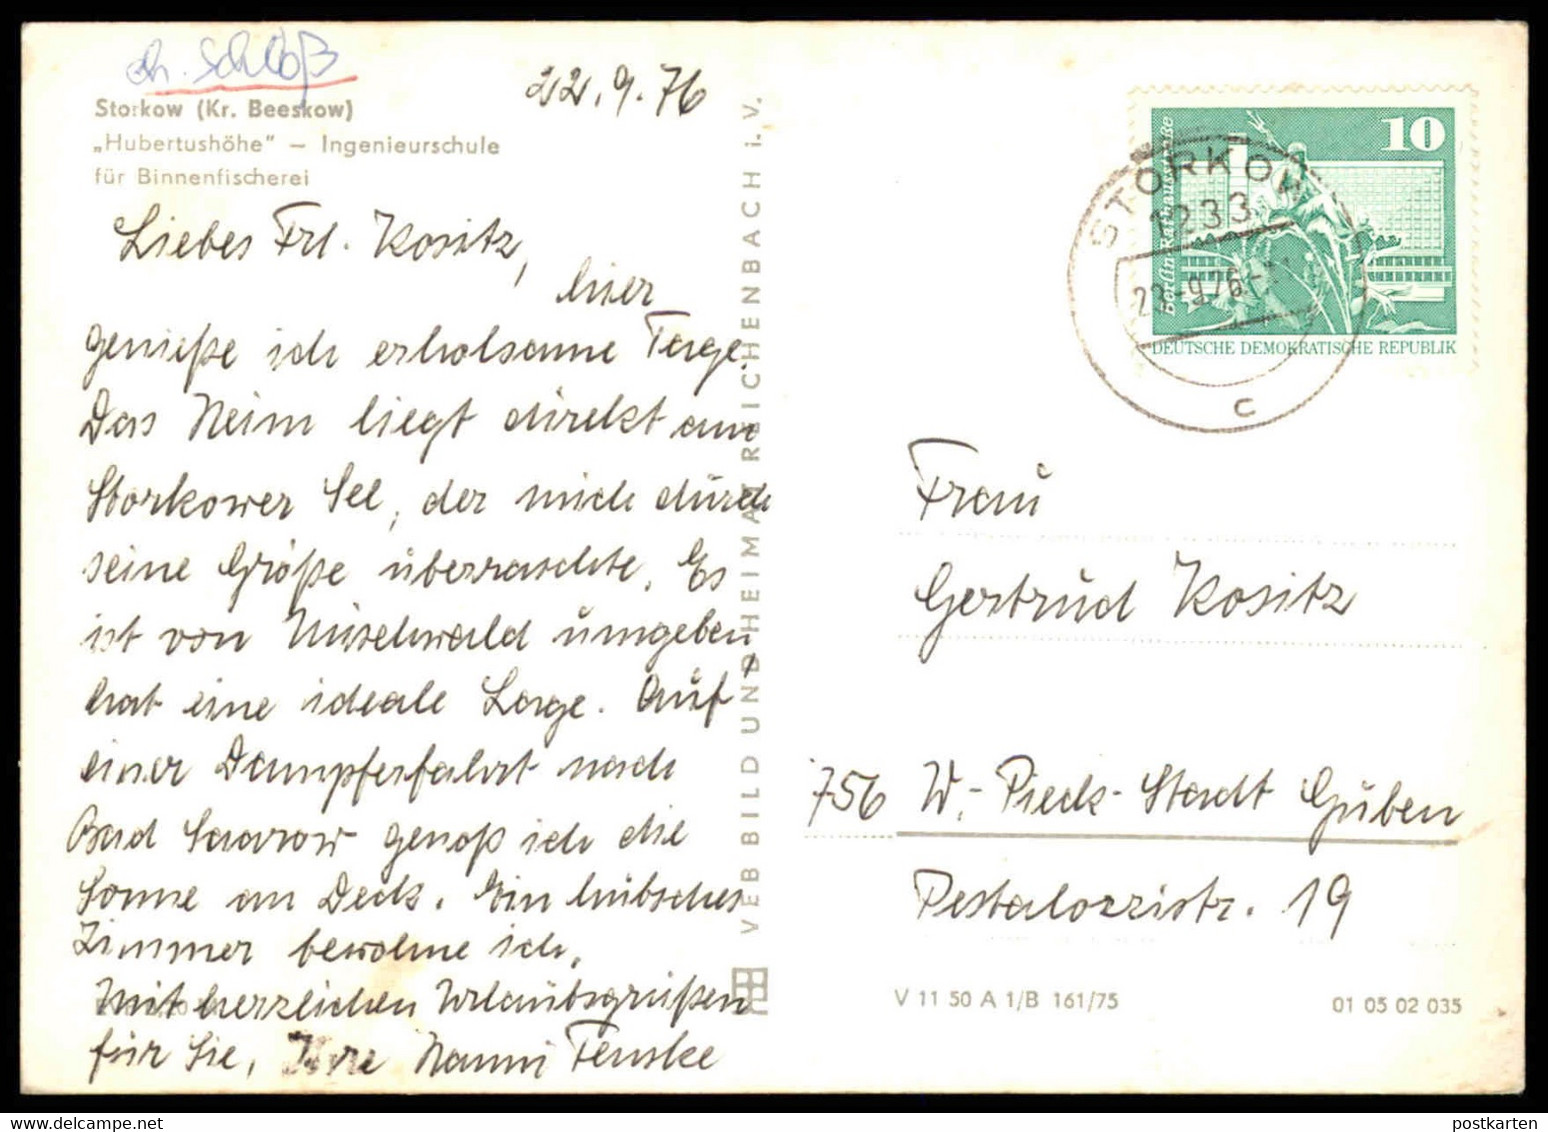 Schloß
22.9.76
Storkow (Kr. Beeskow)
„Hubertushöhe" — Ingenieurschule
für Binnenfischerei
Liebes Frl. Kositz,
hier
genieße ich erholsame Tage.
Das Heim liegt direkt am
Storkower See, der mich durch
seine Größe überraschte. Es
ist von Mischwald umgeben,
hat eine ideale Lage. Auf
einer Dampferfahrt nach
Bad Saarow genoß ich die
Sonne an Deck. Ein hübsches
Zimmer bewohne ich.
Mit herzlichen Urlaubsgrüßen
für Sie, Ihre Nanni Fenske
VEB BILD UND HEIMAT REICHENBACH i. V.
10
Berlin-Rathausstraße
DEUTSCHE DEMOKRATISCHE REPUBLIK
STORKOW
1233
22.-9.76-
c
Frau
Gertrud Kositz
756 W.-Pieck-Stadt Guben
Pestalozzistr. 19
V 11 50 A 1/B 161/75
01 05 02 035
postkarten